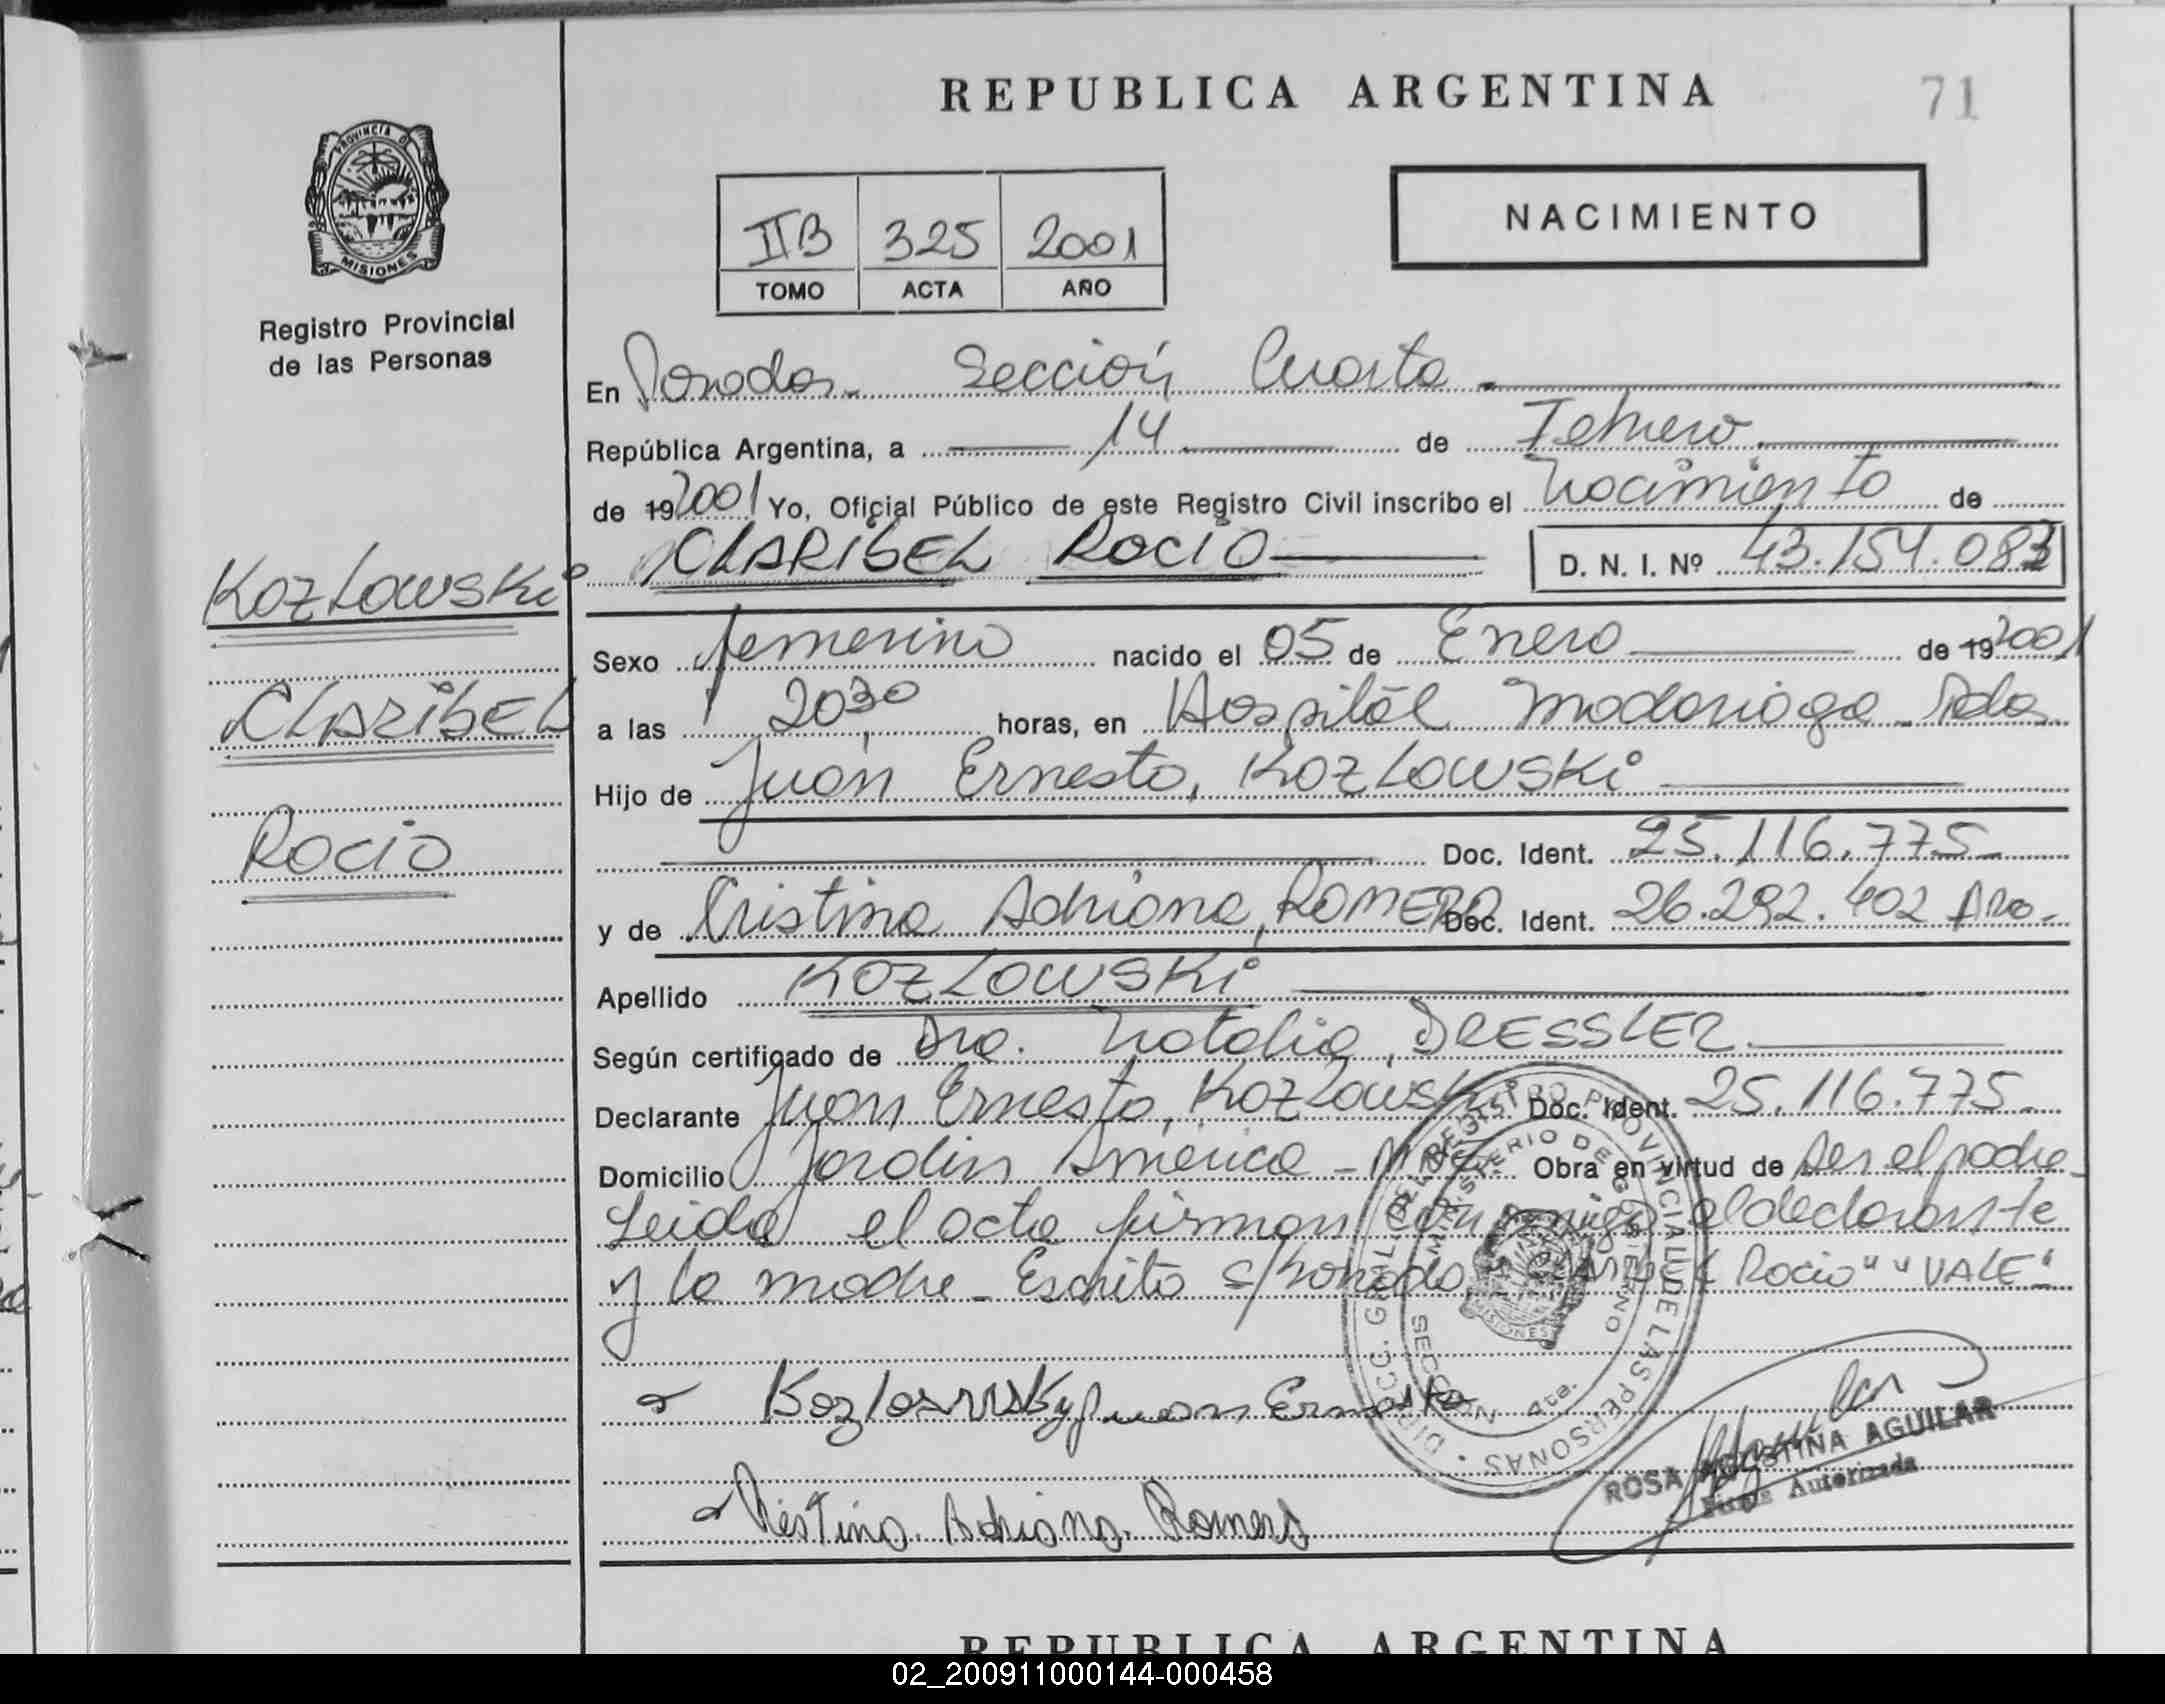 REPUBLICA ARGENTINA
71
PROVINCIA DE
MISIONES
Registro Provincial
de las Personas
NACIMIENTO
IIB 325 2001
TOMO ACTA AÑO
En Posadas - Sección Cuarta
República Argentina, a 14 de Febrero
de 19 2001 Yo, Oficial Público de este Registro Civil inscribo el Nacimiento de
CLARIBEL ROCIO
D. N. I. Nº 43.154.083
KOZLOWSKi
CLARIBEL
ROCIO
Sexo femenino nacido el 05 de Enero de 19 2001
a las 20,30 horas, en Hospital Madariaga - Pdas
Hijo de Juan Ernesto, KOZLOWSKi
Doc. Ident. 25.116.775
y de Cristina Adriana, ROMERO Doc. Ident. 26.292.402 Arg.
Apellido KOZLOWSKi
Según certificado de Dra. Natalia, DRESSLER
Declarante Juan Ernesto, KOZLOWSKi Doc. Ident. 25.116.775
Domicilio Jardin América - Mnes. Obra en virtud de ser el padre
Leida el acta firman conmigo el declarante
y la madre - Escrito s/borrado Rocio" "VALE"
DIRECC. GRAL. DEL REGISTRO PROVINCIAL DE LAS PERSONAS
MINISTERIO DE GOBIERNO
MISIONES
SECCION 4ta.
Kozlowsky Juan Ernesto
Cristina Adriana Romero
ROSA AGUSTINA AGUILAR
Firma Autorizada
REPUBLICA ARGENTINA
02_200911000144-000458